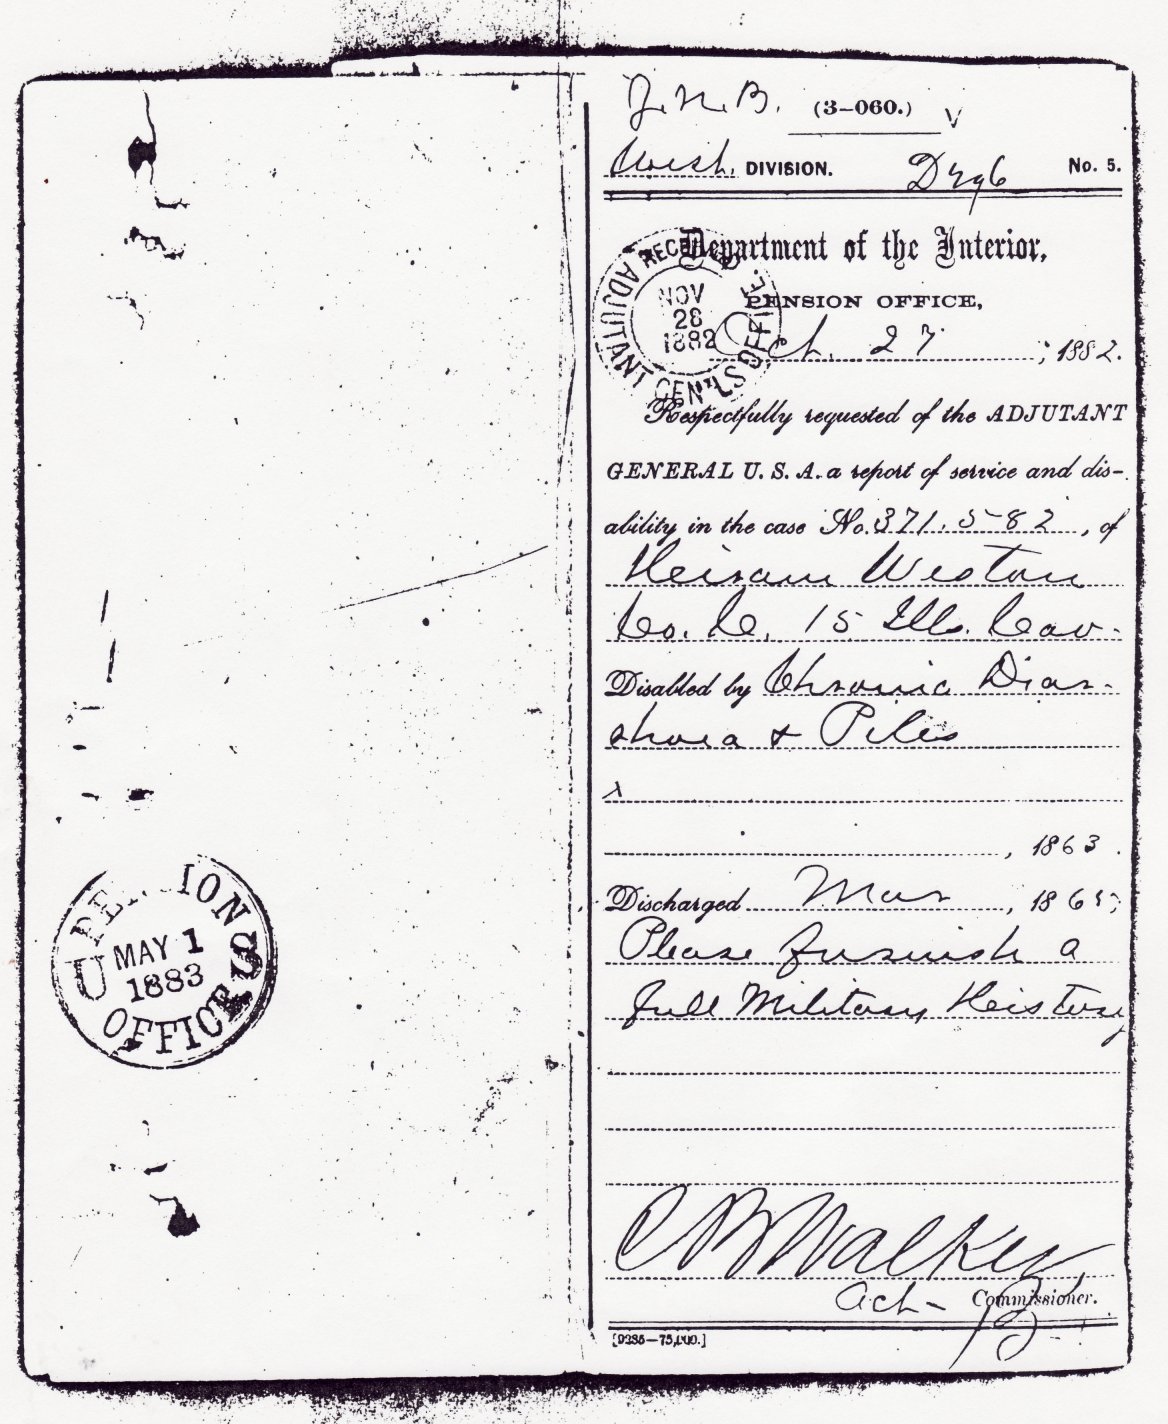 J. N. B. (3–060.)
West. DIVISION. No. 5.
Department of the Interior,
PENSION OFFICE,
Oct. 27, 1882.
RECEIVED
NOV
28
1882
ADJUTANT GEN'L'S OFFICE.
Respectfully requested of the ADJUTANT
GENERAL U. S. A. a report of service and dis-
ability in the case No. 371.582, of
Heiram Weston
Co. C. 15 Ills. Cav.
Disabled by Chronic Diar-
rhoea & Piles
x
, 1863.
Discharged Mar, 1865;
Please furnish a
full Military Heistory
C B Walker
Act- Commissioner.
[9235—75,000.]
U S PENSION OFFICE
MAY 1
1883